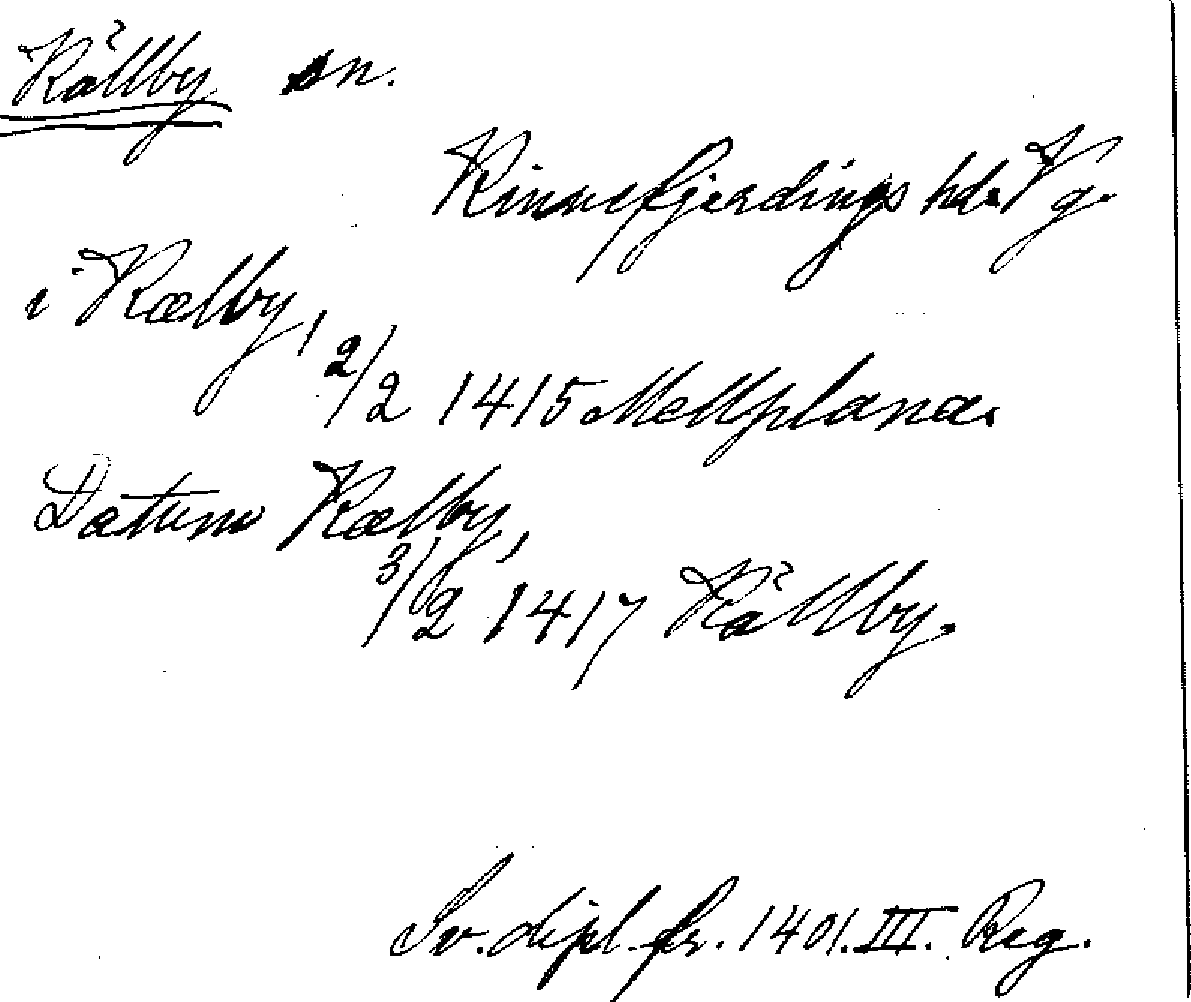 Källby sn.
Kinnefjerdings hd. Vg.
i Kælby,
2/2 1415 Mellplana.
Datum Kælby,
3/2 1417 Källby.
Sv. dipl. fr. 1401. III. Reg.